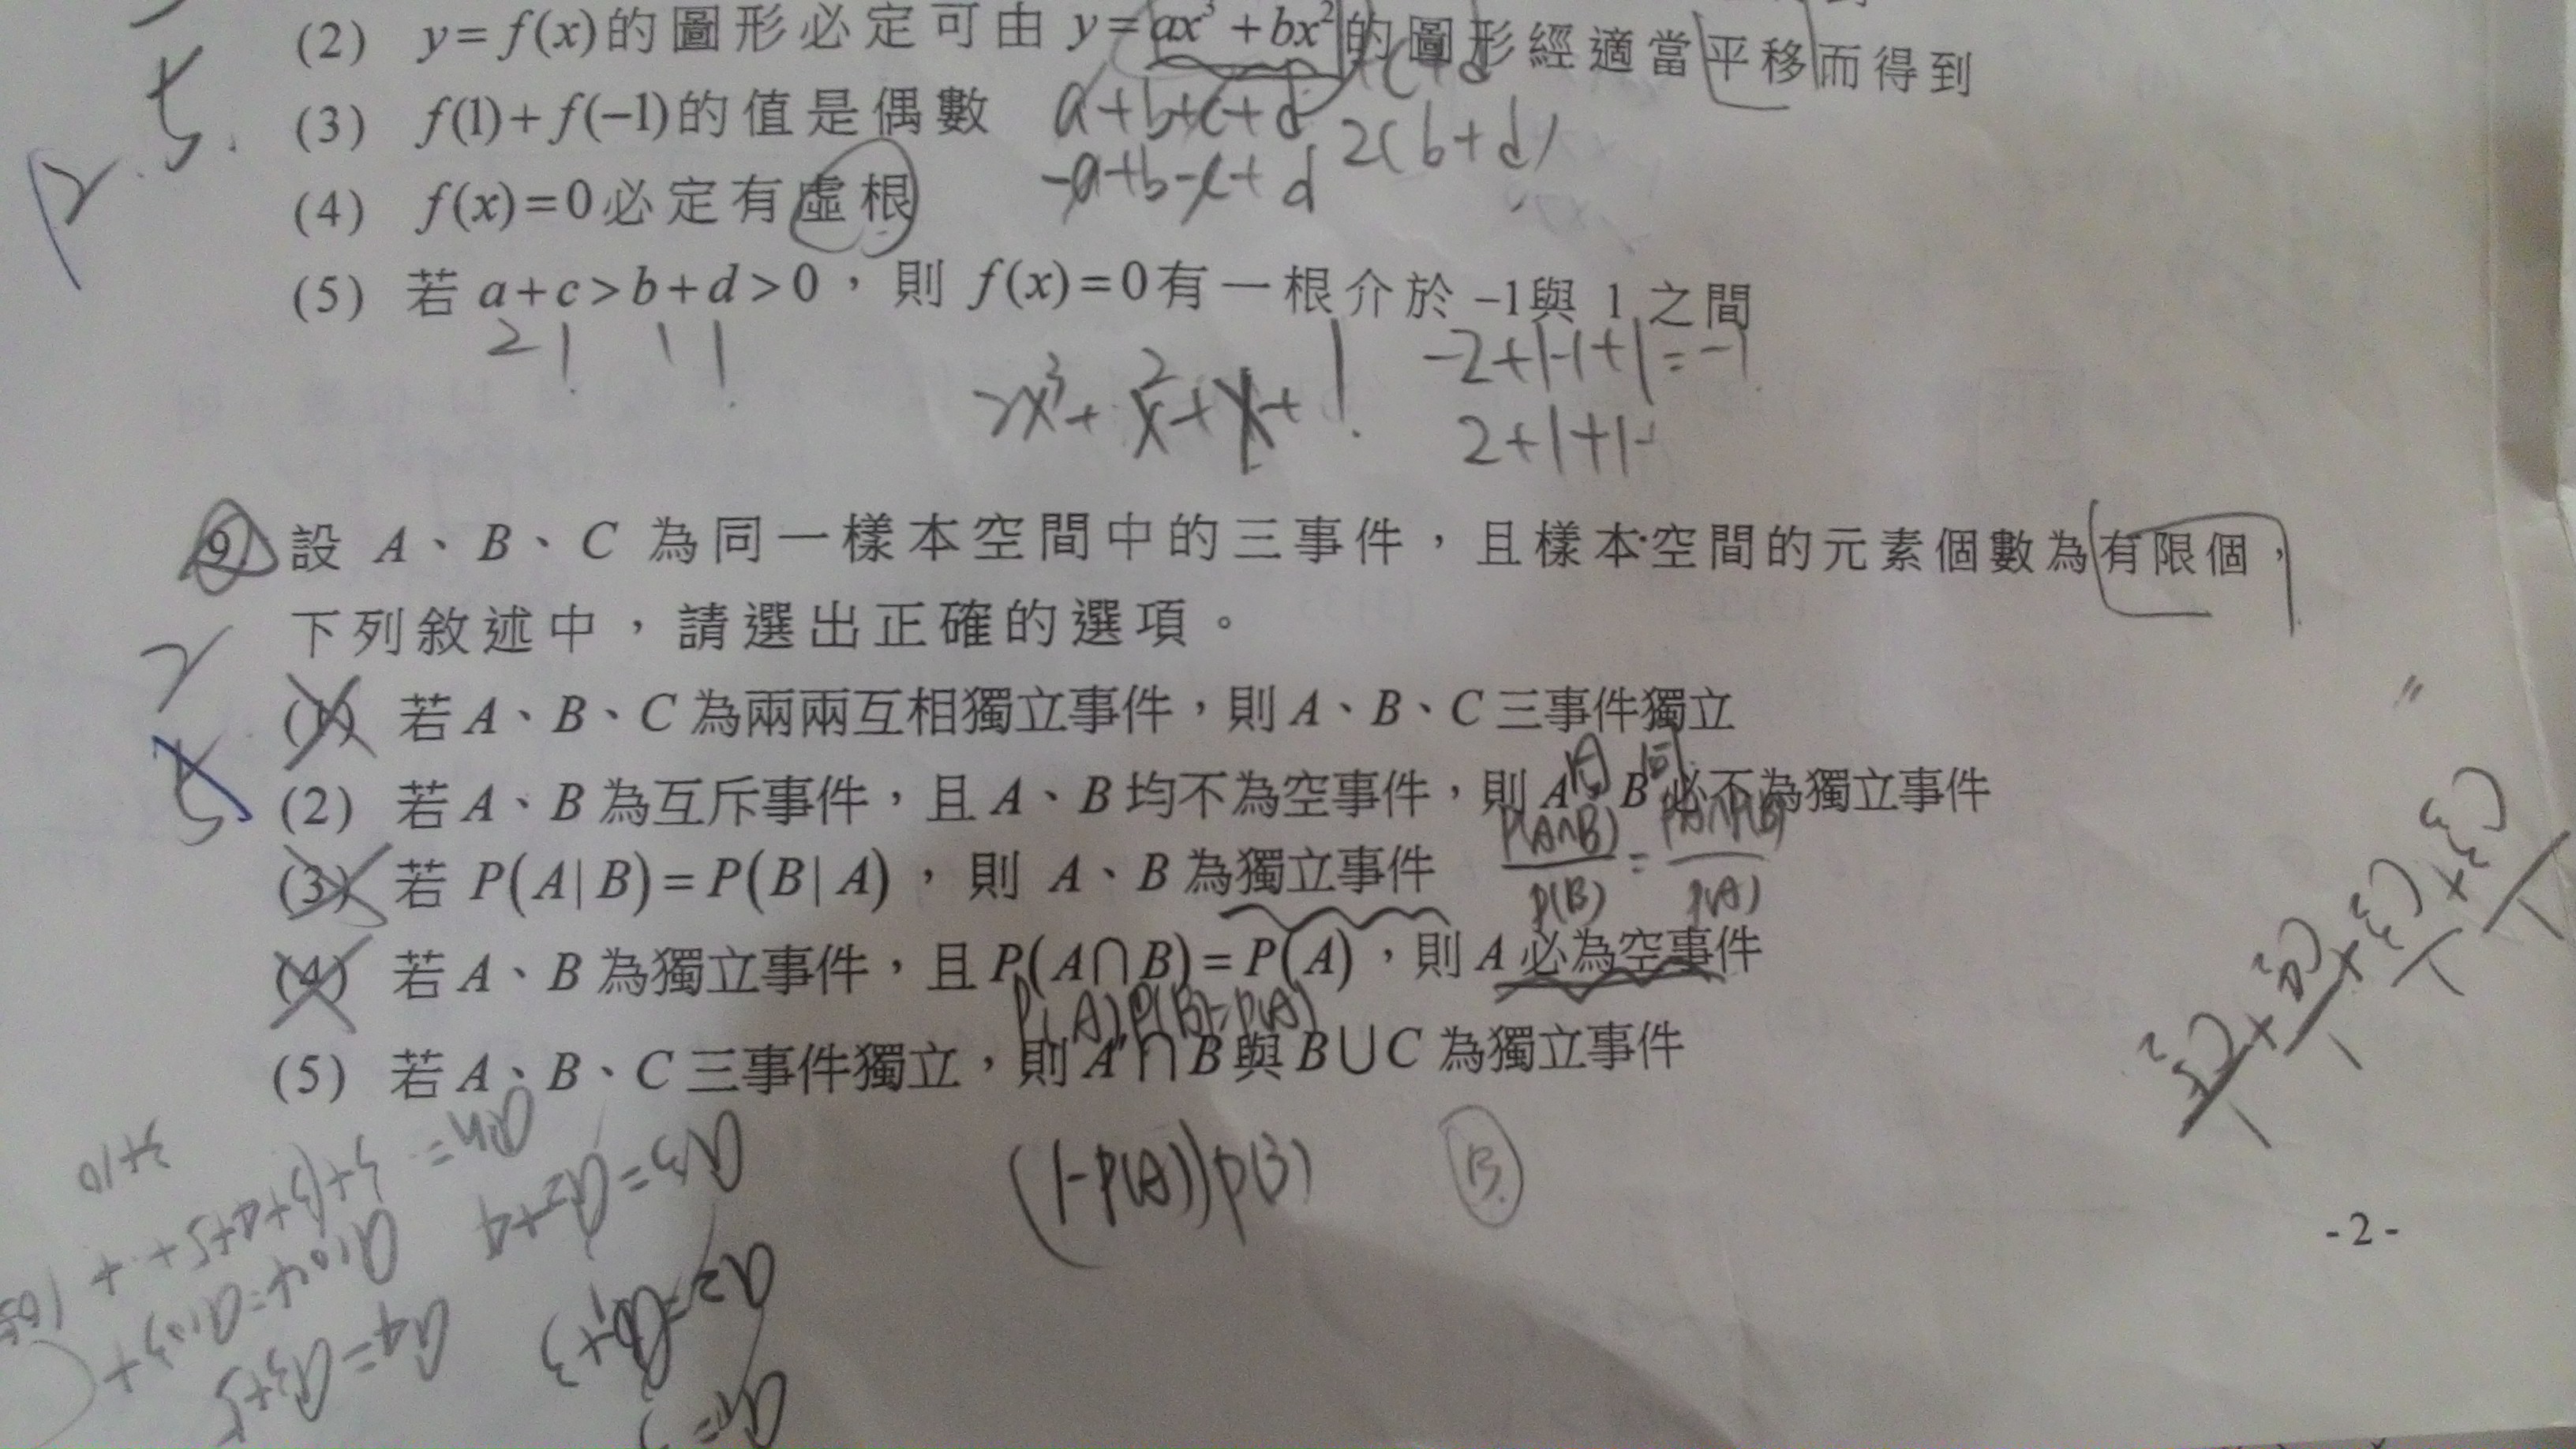 (2) y=f(x)的圖形必定可由 y=ax³+bx²的圖形經適當平移而得到
(3) f(1)+f(−1)的值是偶數
a+b+c+d
2(b+d)
-a+b-c+d
(4) f(x)=0必定有虛根
(5) 若 a+c>b+d>0，則 f(x)=0有一根介於 −1與 1 之間
2 1 1 1
2x³+x²+x+1
-2+1-1+1=-1
2+1+1+
9. 設 A、B、C 為同一樣本空間中的三事件，且樣本空間的元素個數為有限個，
下列敘述中，請選出正確的選項。
2
5
(1) 若 A、B、C 為兩兩互相獨立事件，則 A、B、C 三事件獨立
(2) 若 A、B 為互斥事件，且 A、B 均不為空事件，則 A、B 必不為獨立事件
(3) 若 P(A|B)=P(B|A)，則 A、B 為獨立事件
P(A∩B)/P(B) = P(A∩B)/P(A)
(4) 若 A、B 為獨立事件，且 P(A∩B)=P(A)，則 A 必為空事件
P(A)P(B)=P(A)
(5) 若 A、B、C 三事件獨立，則 A'∩B 與 B∪C 為獨立事件
(1-P(A))P(B)
B
a₃=a₂+4
a₂=a₁+3
a₄=a₃+5
-2-